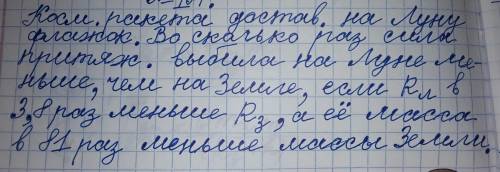 Косм. ракета достав. на Луну
флажок. Во сколько раз сила
притяж. выбила на Луне ме-
ньше, чем на Земле, если Rл в
3,8 раз меньше Rз, а её масса
в 81 раз меньше массы Земли.